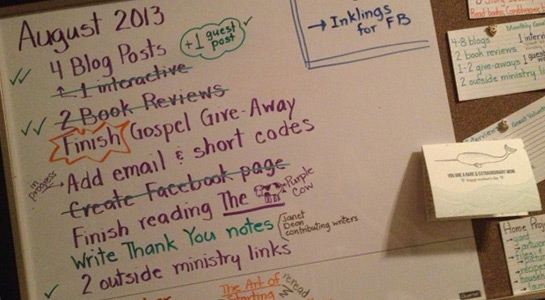 August 2013
✓✓ 4 Blog Posts +1 guest post ✓
↑ 1 interactive
✓✓ 2 Book Reviews
Finish Gospel Give-Away
in progress → Add email & short codes
Create Facebook page
Finish reading The Purple Cow
Write Thank You notes (Janet Dean contributing writers
✓ 2 outside ministry links
The Art of
reread
→ Inklings
for FB
4-8 blogs
2 book reviews
1-2 give-aways
2 outside ministry
YOU ARE A RARE & EXTRAORDINARY MOM
Home